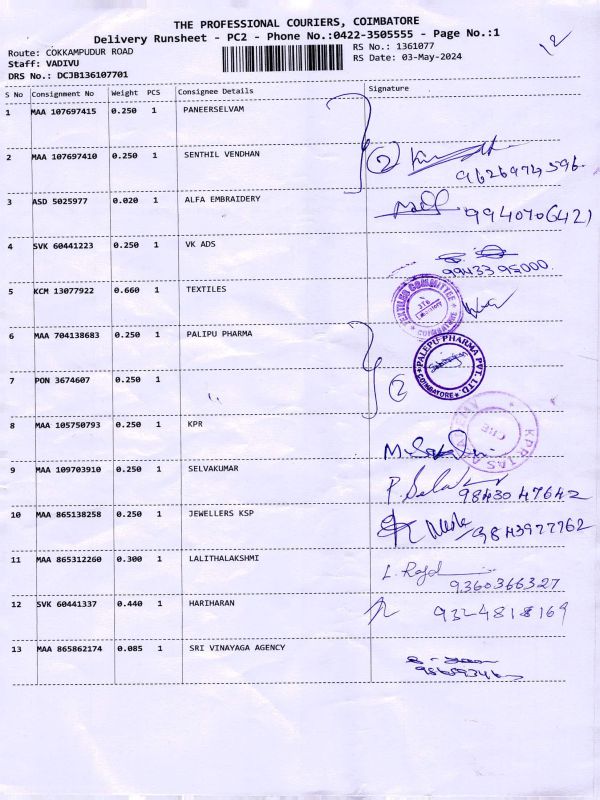 THE PROFESSIONAL COURIERS, COIMBATORE
Delivery Runsheet - PC2 - Phone No.:0422-3505555 - Page No.:1
Route: COKKAMPUDUR ROAD
Staff: VADIVU
DRS No.: DCJB136107701
RS No.: 1361077
RS Date: 03-May-2024
12
S No Consignment No Weight PCS Consignee Details Signature
1 MAA 107697415 0.250 1 PANEERSELVAM
2 MAA 107697410 0.250 1 SENTHIL VENDHAN 2
3 ASD 5025977 0.020 1 ALFA EMBRAIDERY
4 SVK 60441223 0.250 1 VK ADS
9943395000
5 KCM 13077922 0.660 1 TEXTILES
COIMBATORE
6 MAA 704138683 0.250 1 PALIPU PHARMA
PALEPU PHARMA PVT. LTD. COIMBATORE
7 PON 3674607 0.250 1 2
8 MAA 105750793 0.250 1 KPR
9 MAA 109703910 0.250 1 SELVAKUMAR
9843047642
10 MAA 865138258 0.250 1 JEWELLERS KSP 9843977762
11 MAA 865312260 0.300 1 LALITHALAKSHMI
9360366327
12 SVK 60441337 0.440 1 HARIHARAN 9324818169
13 MAA 865862174 0.085 1 SRI VINAYAGA AGENCY